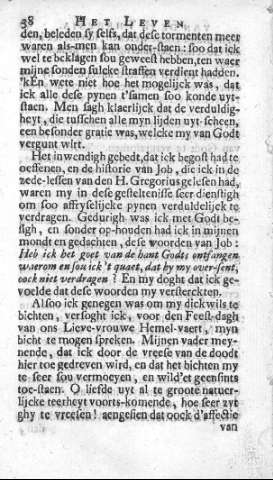 38 HET LEVEN
den, beleden sy selfs, dat dese tormenten meer
waren als-men kan onder-staen: soo dat ick
wel te beklagen sou geweest hebben, ten waer
mijne sonden sulcke straffen verdient hadden.
'kEn wete niet hoe het mogelijck was, dat
ick alle dese pynen t'samen soo konde uyt-
staen. Men sagh klaerlijck dat de verduldig-
heyt, die tusschen alle myn lijden uyt-scheen,
een besonder gratie was, welcke my van Godt
vergunt wirt.
Het inwendigh gebedt, dat ick begost had te
oeffenen, en de historie van Job, die ick in de
zede-lessen van den H. Gregorius gelesen had,
waren my in dese gesteltenisse seer dienstigh
om soo affryselijcke pynen verduldelijck te
verdragen. Gedurigh was ick met Godt be-
sigh, en sonder op-houden had ick in mijnen
mondt en gedachten, dese woorden van Job:
Heb ick het goet van de hant Godts ontfangen
waerom en sou ick 't quaet, dat hy my over-sent,
oock niet verdragen? En my doght dat ick ge-
voelde dat dese woorden my versterckten.
Alsoo ick genegen was om my dickwils te
bichten, versoght ick, voor den Feest-dagh
van ons Lieve-vrouwe Hemel-vaert, myn
bicht te mogen spreken. Mijnen vader mey-
nende, dat ick door de vreese van de doodt
hier toe gedreven wird, en dat het bichten my
te seer sou vermoeyen, en wild'et geensints
toe-staen. O liefde uyt al te groote natuer-
lijcke teerheyt voorts-komende, hoe seer zyt
ghy te vreesen! aengesien dat oock d'affectie
van